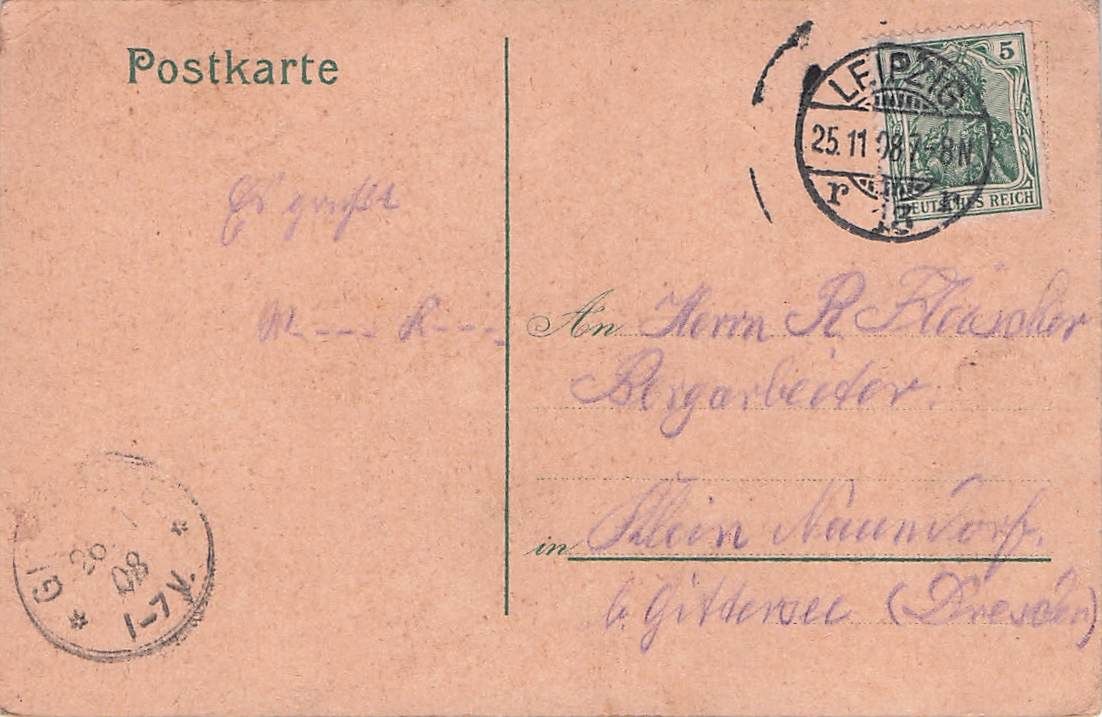 Postkarte
5
LEIPZIG
25.11 08 7-8N
r 13 r
DEUTSCHES REICH
Es grüßt
M---. K---.
An Herrn R. Fleischer
Bergarbeiter.
in Klein Naundorf.
b. Gittersee (Dresden)
GI
26
08
1-7V.